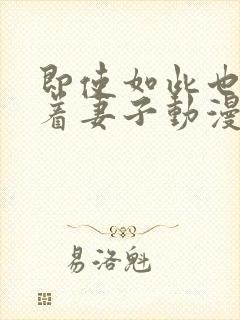 即使如此也
着妻子動漫
易洛魁